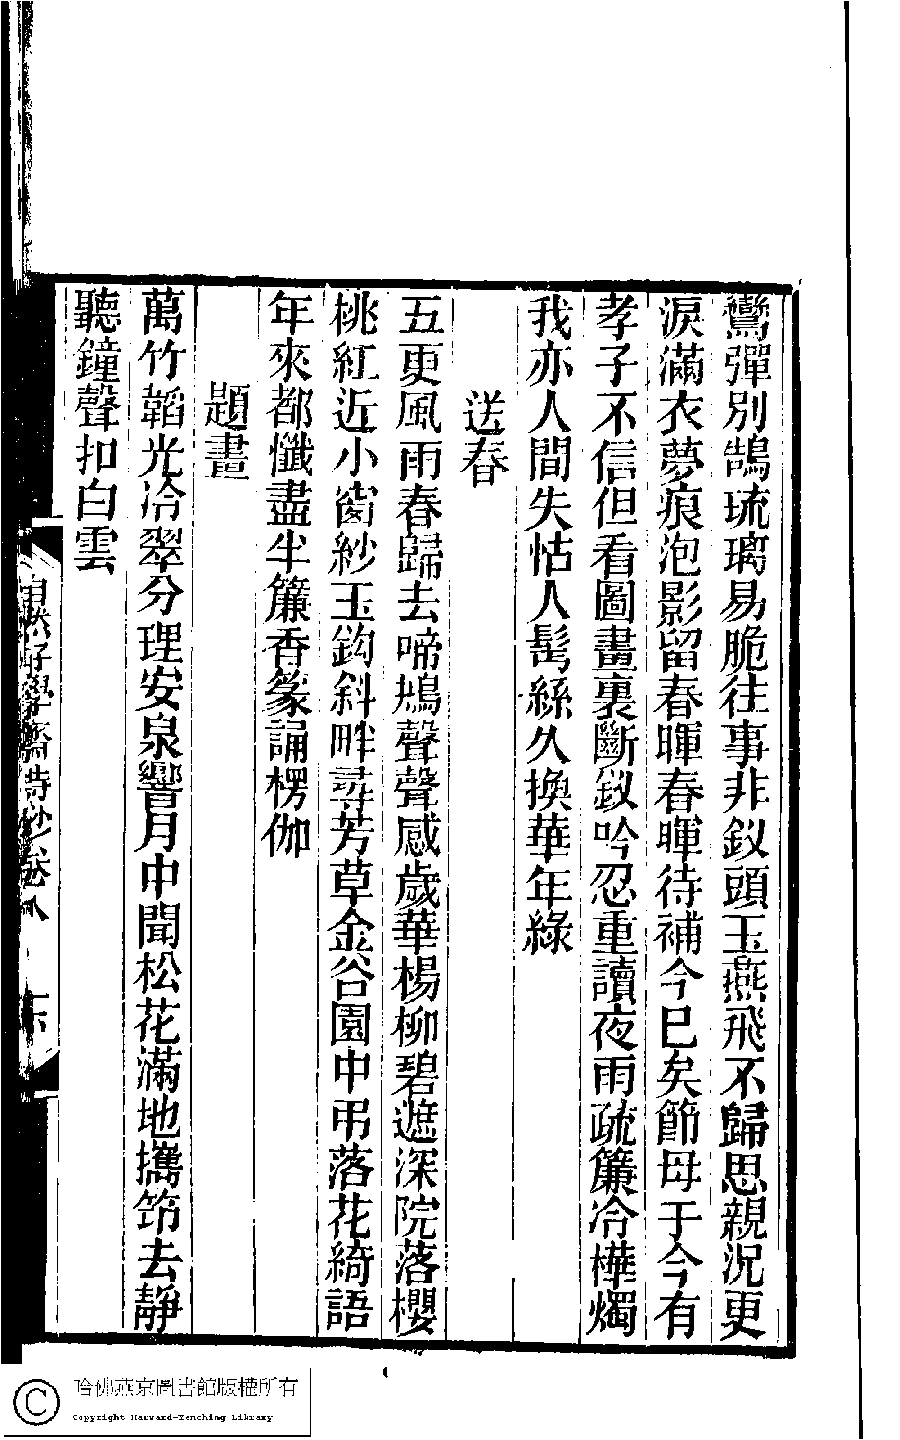 鸞彈別鵠琉璃易脆往事非釵頭玉燕飛不歸思親況更
淚滿衣夢痕泡影留春暉春暉待補今已矣節母于今有
孝子不信但看圖畫裏斷釵吟忍重讀夜雨疏簾冷樺燭
我亦人間失怙人髩絲久換華年綠
送春
五更風雨春歸去啼鴂聲聲感歲華楊柳碧遮深院落櫻
桃紅近小窗紗玉鈎斜畔尋芳草金谷園中弔落花綺語
年來都懺盡半簾香篆誦楞伽
題畫
萬竹韜光冷翠分理安泉響月中聞松花滿地攜笻去靜
聽鐘聲扣白雲
自然好學齋詩鈔卷八
哈佛燕京圖書館版權所有
Copyright Harvard-Yenching Library